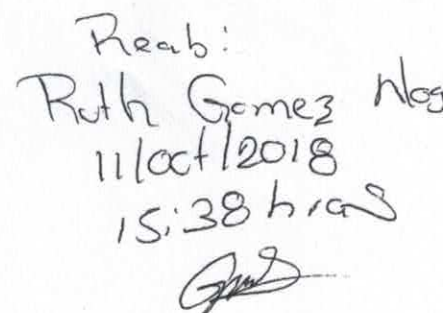 Recib:
Ruth Gomez Nog
11/oct/2018
15:38 hras